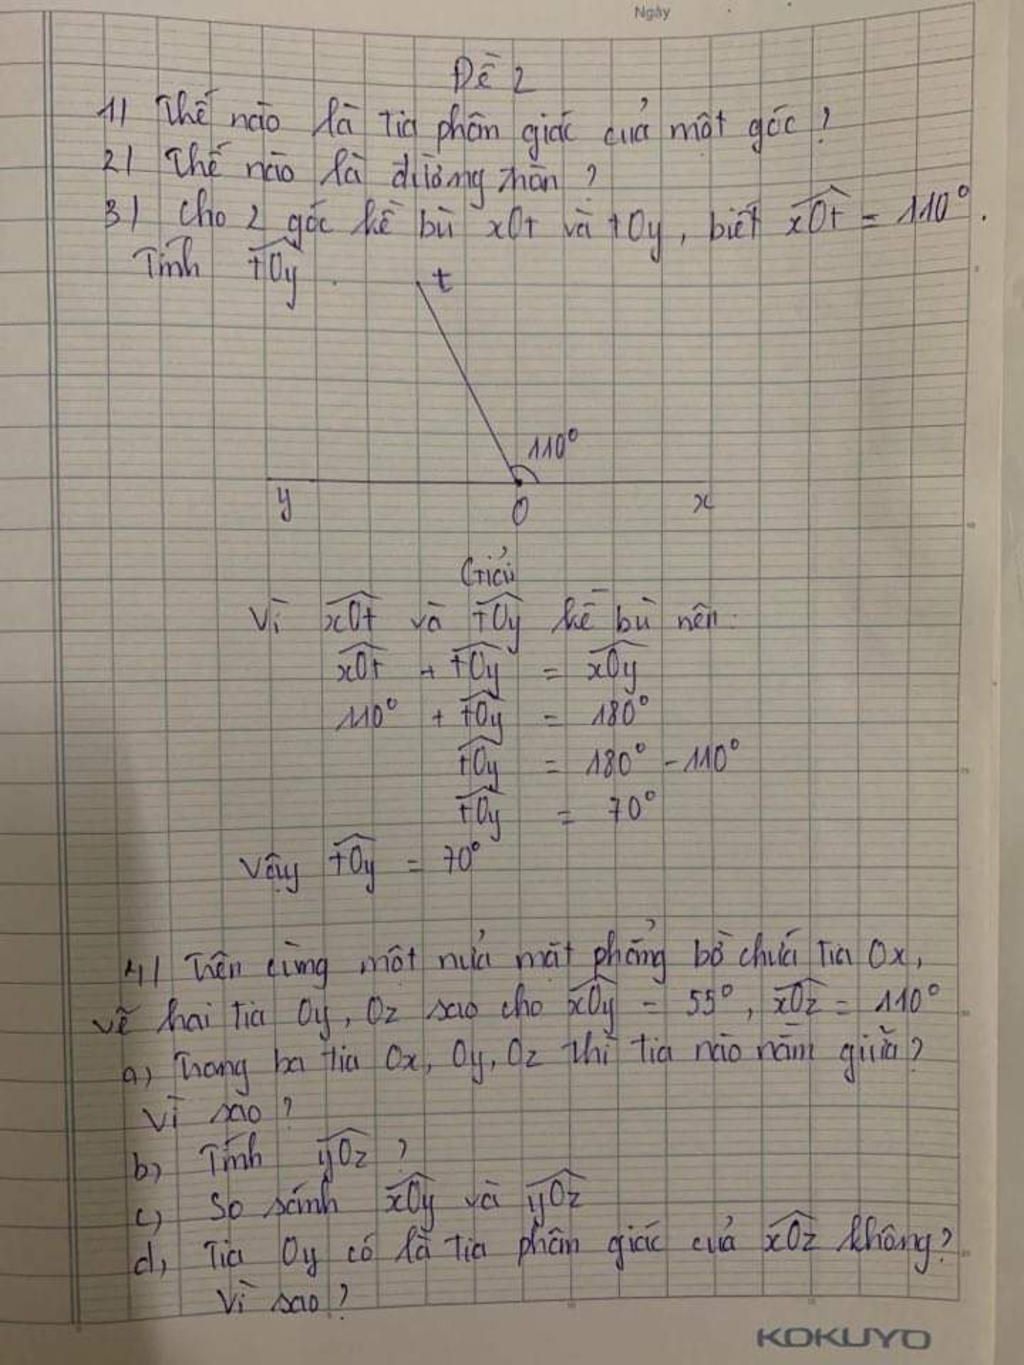 Ngày
Đề 2
1) Thế nào là tia phân giác của một góc?
2) Thế nào là đường tròn?
3) Cho 2 góc kề bù xOt và tOy, biết xOt = 110°.
Tính tOy
t
110°
y O x
Giải
Vì xOt và tOy kề bù nên:
xOt + tOy = xOy
110° + tOy = 180°
tOy = 180° - 110°
tOy = 70°
Vậy tOy = 70°
4) Trên cùng một nửa mặt phẳng bờ chứa tia Ox,
vẽ hai tia Oy, Oz sao cho xOy = 55°, xOz = 110°
a) Trong ba tia Ox, Oy, Oz thì tia nào nằm giữa?
Vì sao?
b) Tính yOz?
c) So sánh xOy và yOz
d) Tia Oy có là tia phân giác của xOz không?
Vì sao?
KOKUYO